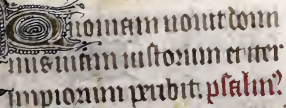 Quoniam nouit domi
nus uiam iustorum et iter
impiorum peribit. psalm?